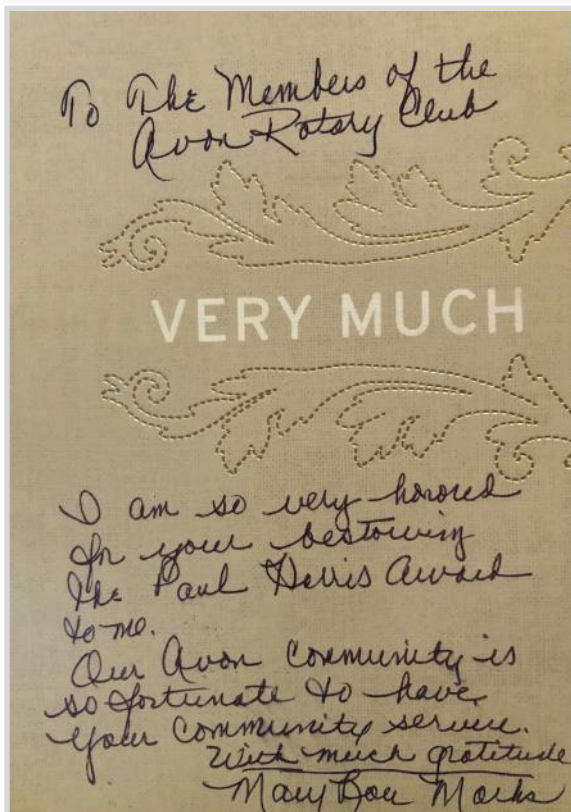 To The Members of the
Avon Rotary Club
VERY MUCH
I am so very honored
for your bestowing
the Paul Harris Award
to me.
Our Avon Community is
so fortunate to have
your community service.
With much gratitude
Mary Lou Marks